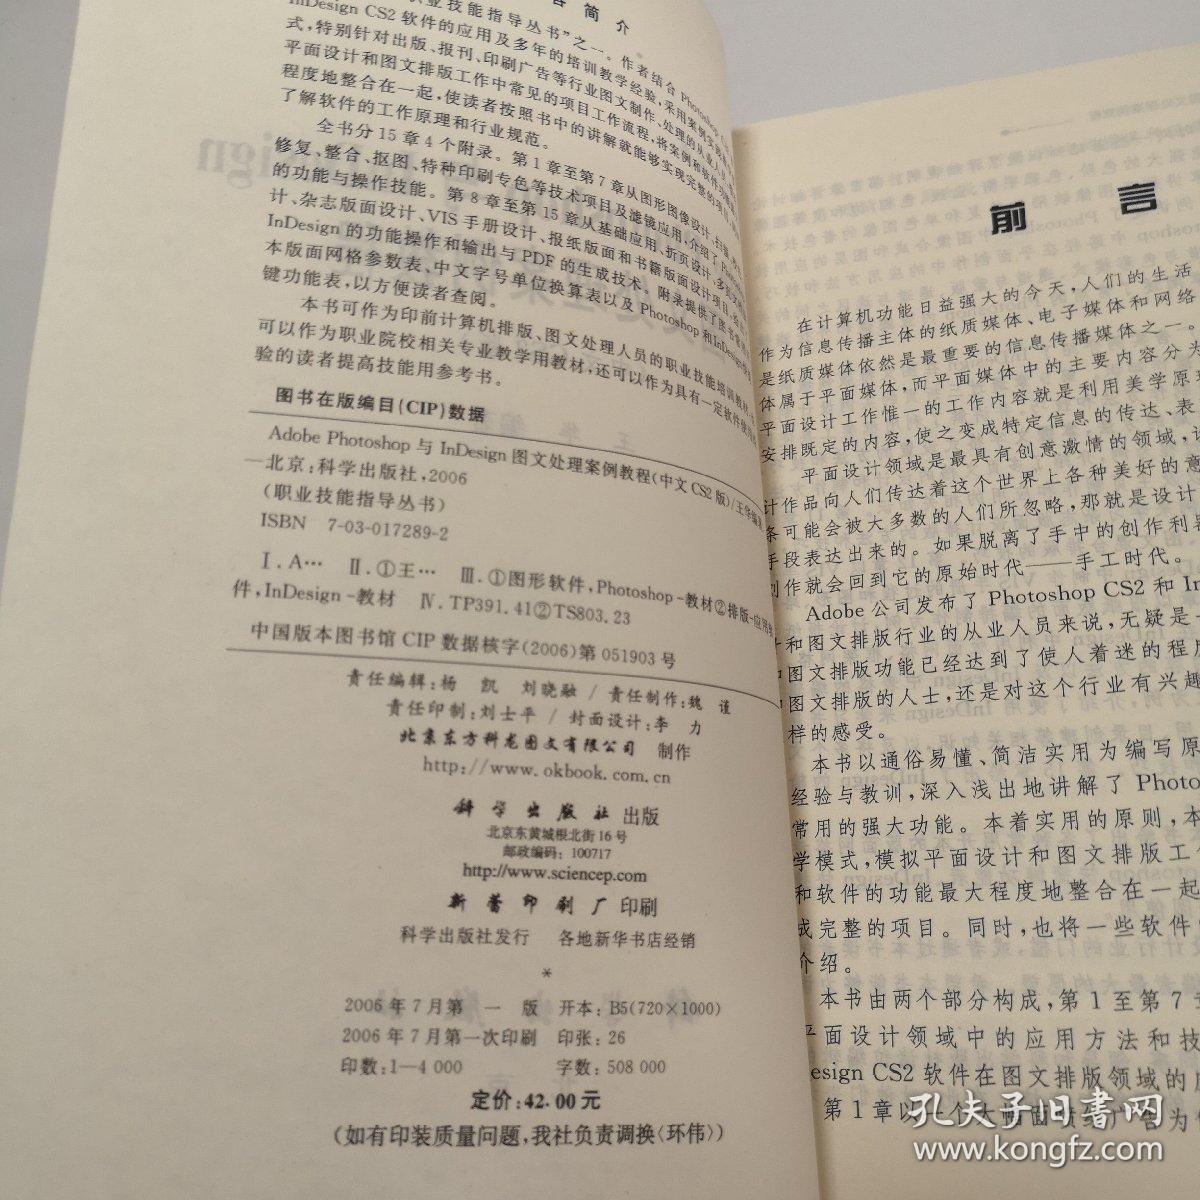 简介
业技能指导丛书”之一。作者结合 Photoshop
InDesign CS2 软件的应用及多年的培训教学经验,采用案例
式,特别针对出版、报刊、印刷广告等行业图文制作、处理的从业人员
平面设计和图文排版工作中常见的项目工作流程,将案例和软件功能
程度地整合在一起,使读者按照书中的讲解就能够实现完整的项
了解软件的工作原理和行业规范。
全书分15章4个附录。第1章至第7章从图形图像设计、
修复、整合、抠图、特种印刷专色等技术项目及滤镜应用,介绍了
的功能与操作技能。第8章至第15章从基础应用、折页设计、
计、杂志版面设计、VIS 手册设计、报纸版面和书籍版面设计项目,
InDesign 的功能操作和输出与 PDF 的生成技术。附录提供了图书
本版面网格参数表、中文字号单位换算表以及 Photoshop和InDesign快
键功能表,以方便读者查阅。
本书可作为印前计算机排版、图文处理人员的职业技能培训教材,
可以作为职业院校相关专业教学用教材,还可以作为具有一定软件使用
验的读者提高技能用参考书。
图书在版编目(CIP)数据
Adobe Photoshop 与 InDesign 图文处理案例教程(中文CS2版)/王华编著
—北京:科学出版社,2006
(职业技能指导丛书)
ISBN 7-03-017289-2
Ⅰ. A… Ⅱ.①王… Ⅲ.①图形软件,Photoshop-教材②排版-应用软
件,InDesign-教材 Ⅳ. TP391.41②TS803.23
中国版本图书馆 CIP 数据核字(2006)第 051903 号
责任编辑:杨 凯 刘晓融 / 责任制作:魏 谨
责任印制:刘士平 / 封面设计:李 力
北京东方科龙图文有限公司 制作
http://www.okbook.com.cn
科学出版社 出版
北京东黄城根北街 16 号
邮政编码: 100717
http://www.sciencep.com
新蕾印刷厂 印刷
科学出版社发行 各地新华书店经销
*
2006 年 7 月第 一 版 开本: B5(720×1000)
2006 年 7 月第一次印刷 印张: 26
印数:1—4 000 字数: 508 000
定价:42.00元
(如有印装质量问题,我社负责调换〈环伟〉)
前 言
在计算机功能日益强大的今天,人们的生活
作为信息传播主体的纸质媒体、电子媒体和网络
是纸质媒体依然是最重要的信息传播媒体之一。
体属于平面媒体,而平面媒体中的主要内容分为
平面设计工作惟一的工作内容就是利用美学原理
安排既定的内容,使之变成特定信息的传达、表
平面设计领域是最具有创意激情的领域,设
计作品向人们传达着这个世界上各种美好的意
条可能会被大多数的人们所忽略,那就是设计
手段表达出来的。如果脱离了手中的创作利器
创作就会回到它的原始时代——手工时代。
Adobe 公司发布了 Photoshop CS2 和 In
和图文排版行业的从业人员来说,无疑是一
图文排版功能已经达到了使人着迷的程度
图文排版的人士,还是对这个行业有兴趣
样的感受。
本书以通俗易懂、简洁实用为编写原
经验与教训,深入浅出地讲解了 Photo
常用的强大功能。本着实用的原则,本
学模式,模拟平面设计和图文排版工作
和软件的功能最大程度地整合在一起
成完整的项目。同时,也将一些软件
介绍。
本书由两个部分构成,第1至第7章
平面设计领域中的应用方法和技
esign CS2 软件在图文排版领域的应
第1章以一个大幅面喷绘广告为
孔夫子旧书网
www.kongfz.com